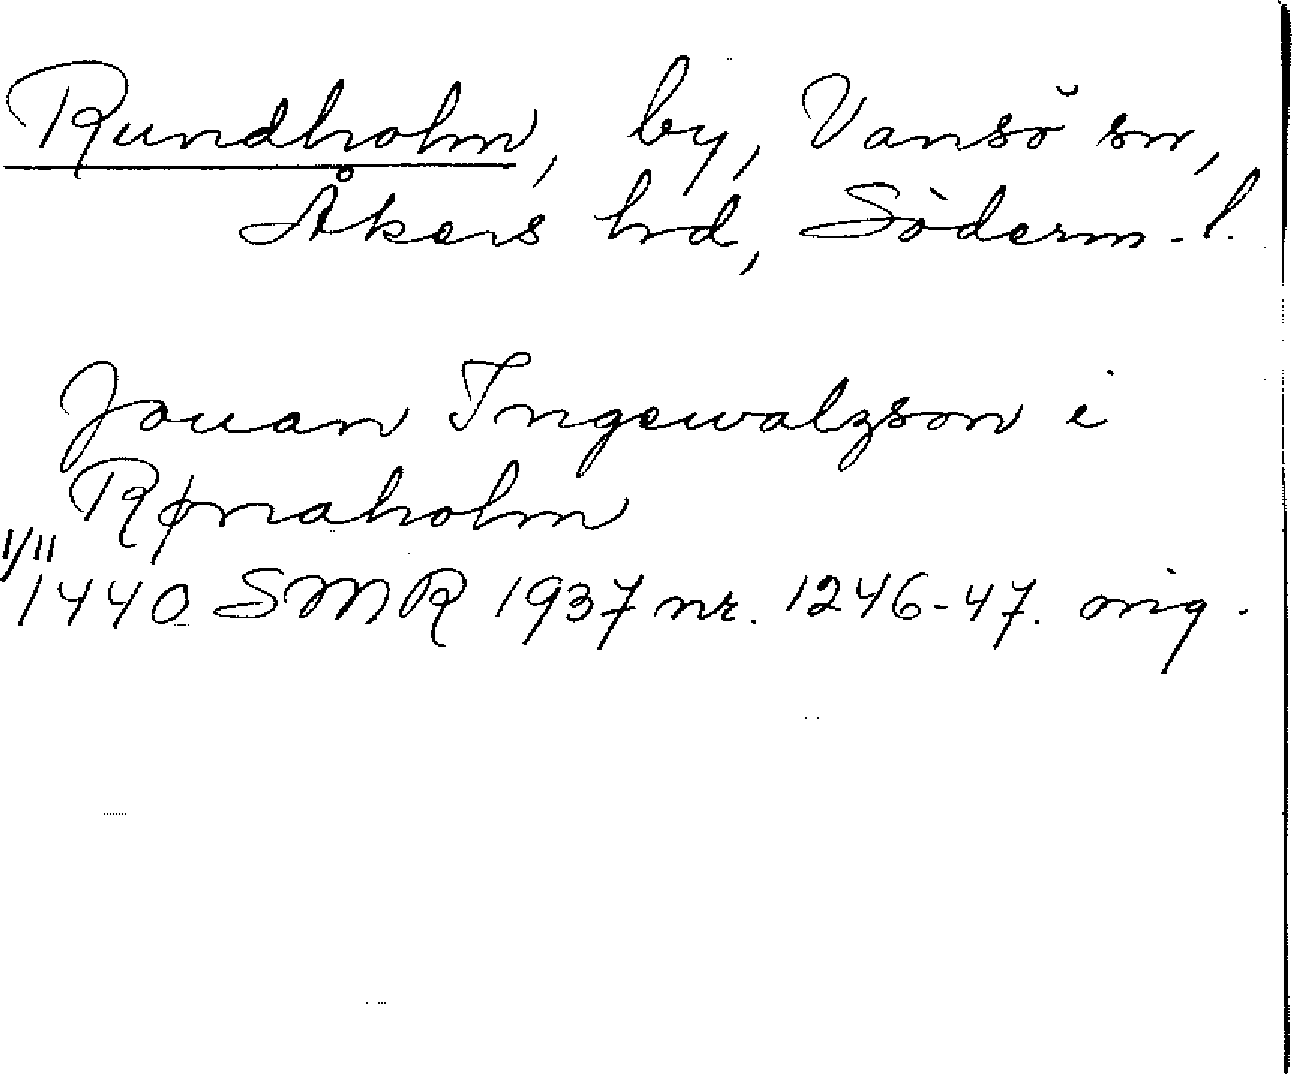 Rundholm, by, Vansö sn,
Åkers hd, Söderm. l.
Jouan Ingewalzson i
Rønaholm
1/11
1440 SMR 1937 nr. 1246-47. orig.